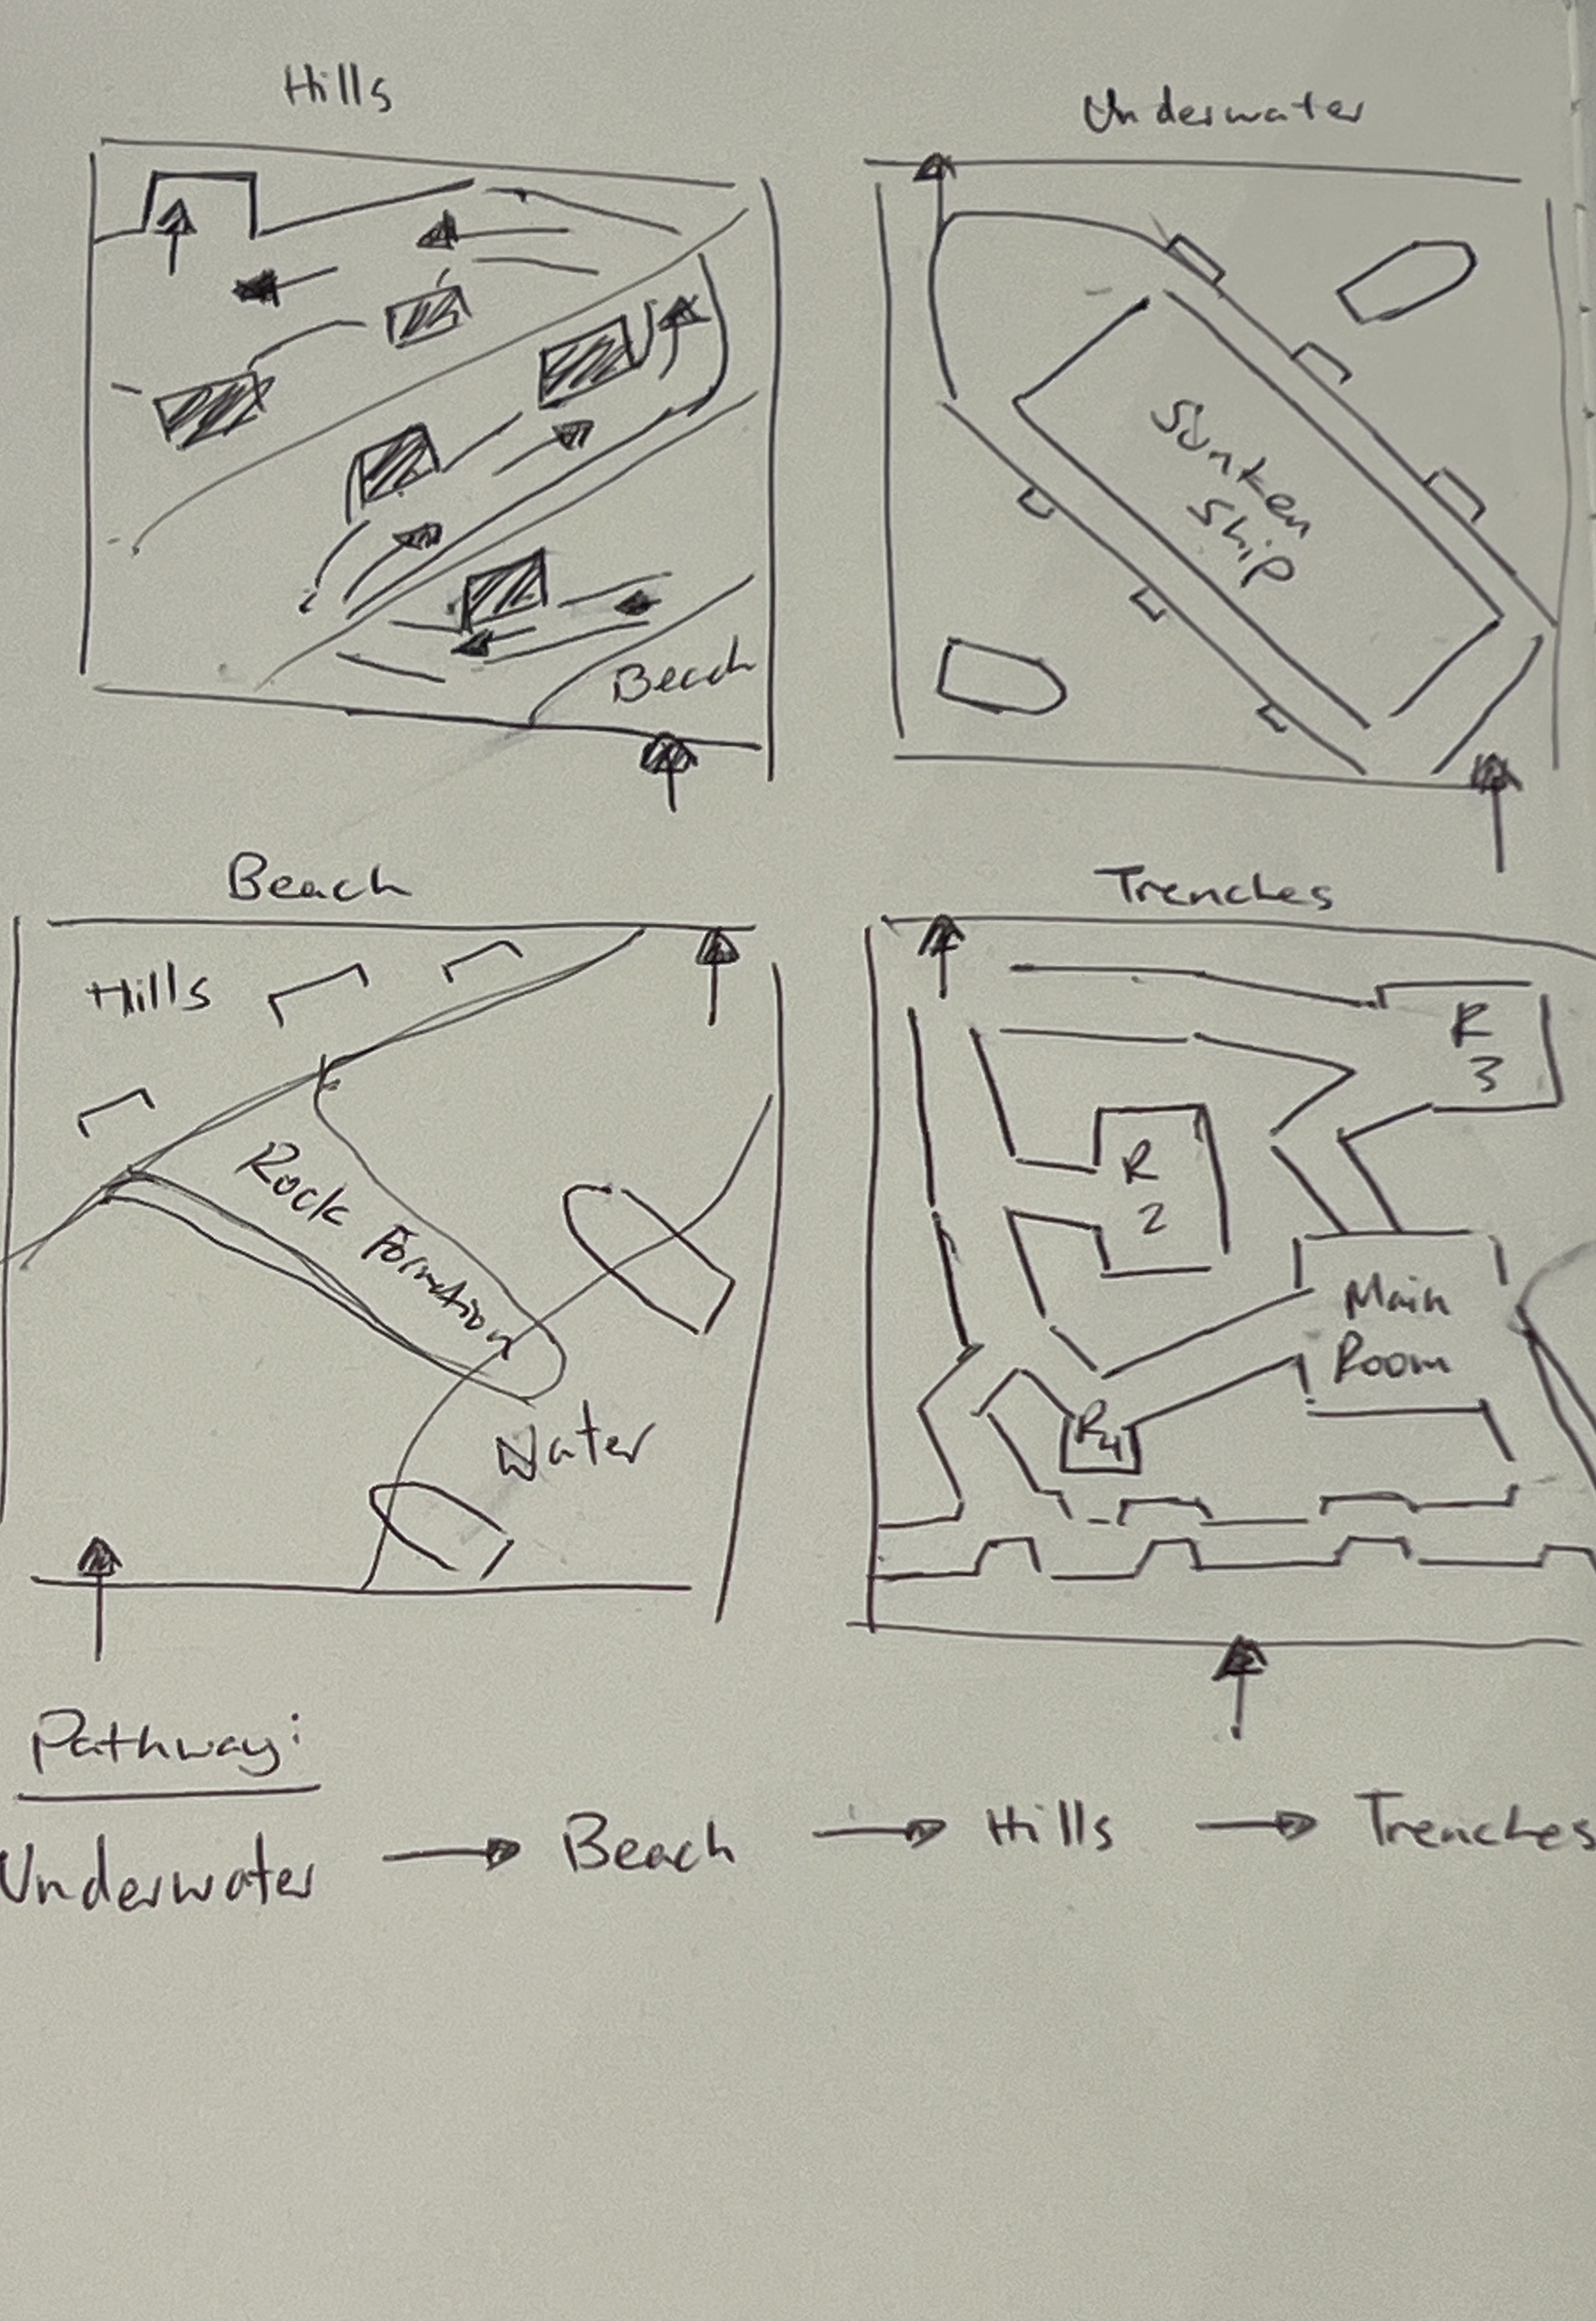 Hills
Underwater
Beach
Sunken
Ship
Beach
Trenches
Hills
Rock Formation
Water
R
3
R
2
Main
Room
R4
Pathway:
Underwater → Beach → Hills → Trenches